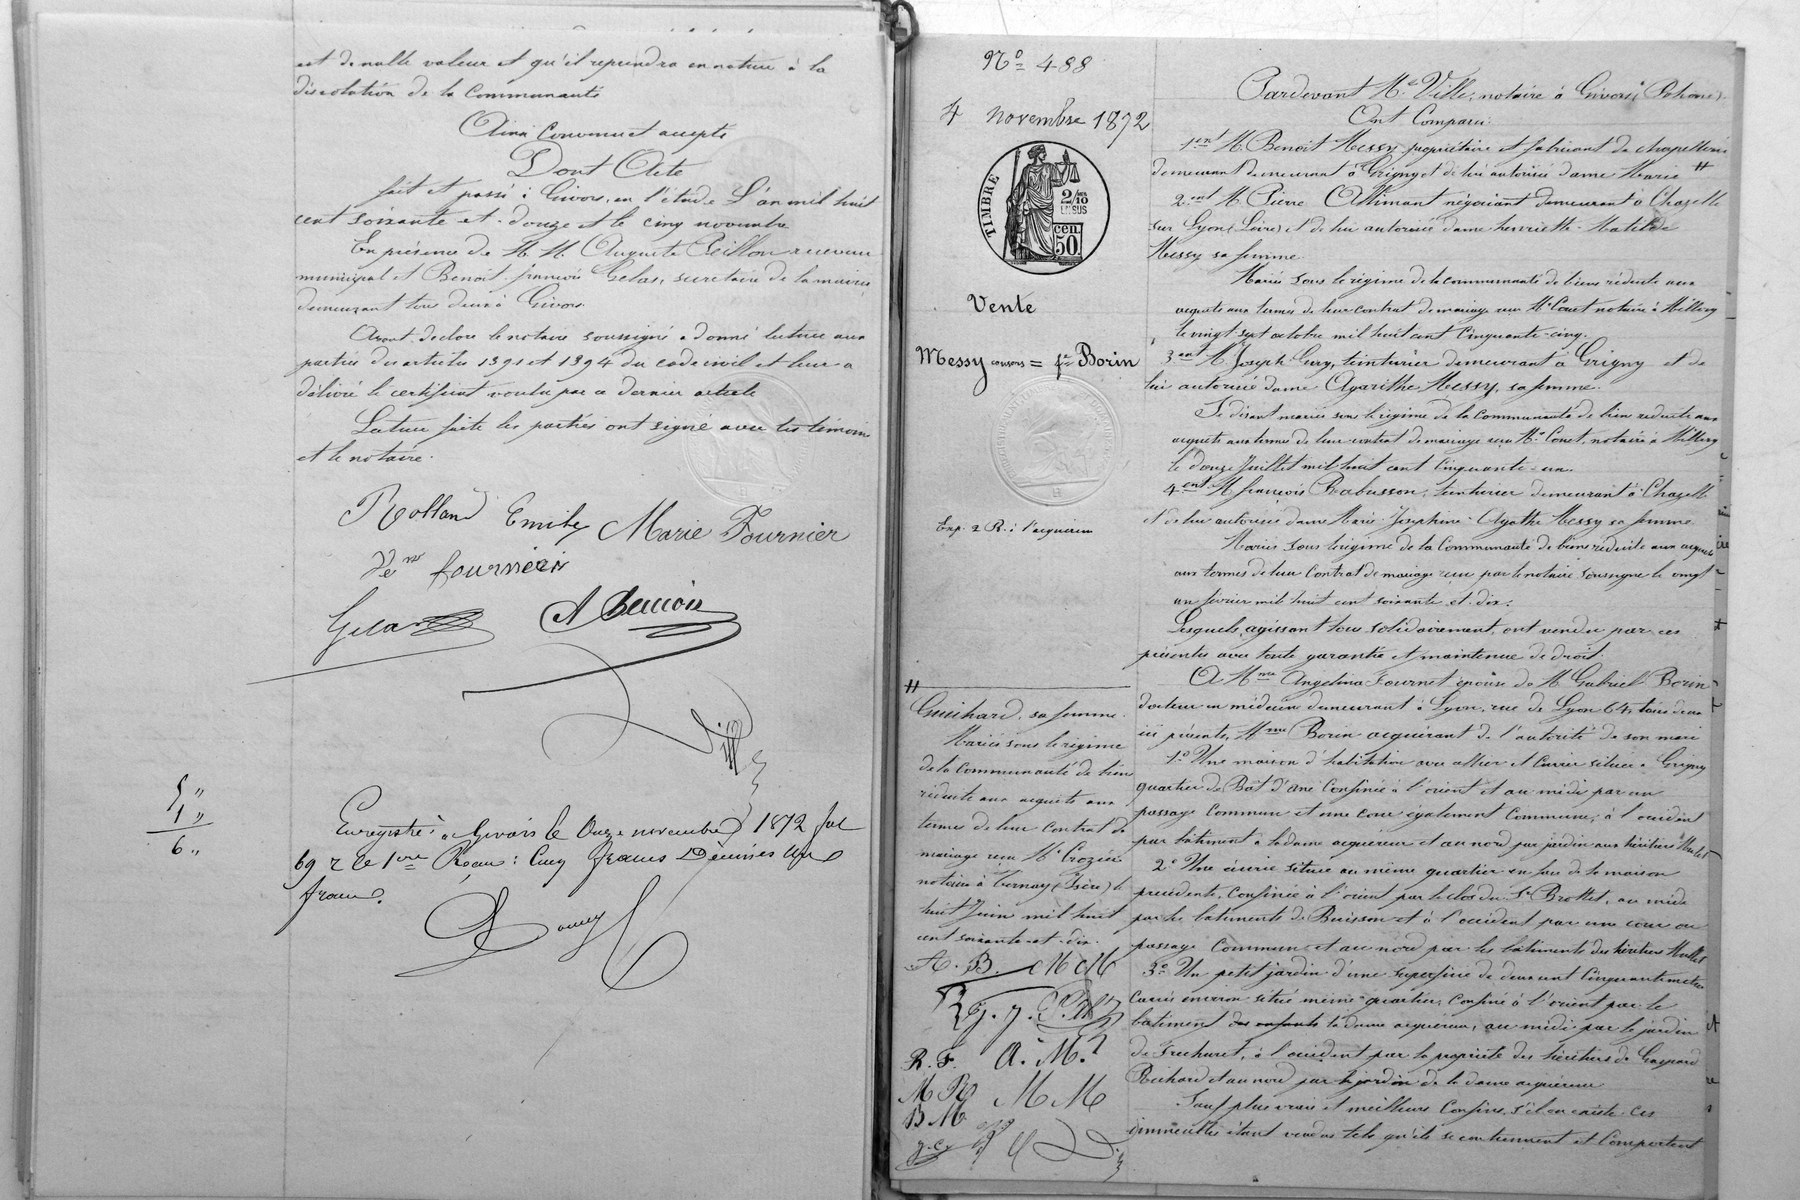 est de nulle valeur et qu'il reprendra en nature à la
dissolution de la Communauté
Ainsi Convenu et accepté
Dont Acte
fait et passé à Givors, en l'étude L'an mil huit
cent soixante et douze et le cinq novembre
En présence de M. M. Auguste receveur
municipal et Benoit françois Gelas, secrétaire de la mairie
demeurant tous deux à Givors.
Avant de clore le notaire soussigné a donné lecture aux
parties des articles 1391 et 1394 du code civil et leur a
délivré le certificat voulu par ce dernier article
Lecture faite les parties ont signé avec les témoins
et le notaire.
Rolland Emile Marie Fournier
Ve fournier
Gelas
5 "
1 "
6 "
Enregistré à Givors le Onze novembre 1872 fol
69 r Ce 1ere Reçu : Cinq francs Décimes Un
franc.
No 488
4 novembre 1872
TIMBRE
2/10
EN SUS
50 cen.
Vente
Messy consors = fe Borin
Exp. 2 R. : l'acquéreur
#
Guichard, sa femme.
Mariés sous le régime
de la Communauté de biens
réduite aux acquets aux
termes de leur contrat de
mariage reçu Me Crozier
notaire à Ternay (Isère) le
huit Juin mil huit
cent soixante et dix.
A. B. M M
R. F. A. M.
M R M M
B M
Pardevant Me Ville, notaire à Givors (Rhône).
Ont Comparu
1ent M. Benoit Messy propriétaire et fabricant de chapellerie
demeurant demeurant à Grigny et de lui autorisée dame Marie #
2ent M. Pierre Allimant négociant demeurant à Chazelle
sur Lyon (Loire) et de lui autorisée dame henriette Matilde
Messy sa femme
Mariés sous le régime de la communauté de biens réduite aux
acquets aux termes de leur contrat de mariage reçu Me Conet notaire à Millery
le vingt sept octobre mil huit cent Cinquante cinq.
3ent M. Joseph Gury, teinturier demeurant à Grigny et de
lui autorisée dame Agarithe Messy, sa femme.
Se disant mariés sous le régime de la Communauté de biens réduite aux
acquets aux termes de leur contrat de mariage reçu Me Conet, notaire à Millery
le douze Juillet mil huit cent Cinquante un.
4ent M françois Rabusson, teinturier demeurant à Chazelle
et de lui autorisée dame Marie Josephine Agathe Messy sa femme.
Mariés sous le régime de la Communauté de biens réduite aux acquets
aux termes de leur Contrat de mariage reçu par le notaire soussigné le vingt
un février mil huit cent soixante et dix.
Lesquels, agissant tous solidairement, ont vendu par ces
présentes avec toute garantie et maintenue de droit.
A Mme Angelina Fournet épouse de M. Gabriel Borin
docteur en médecine demeurant à Lyon, rue de Lyon 64, tous deux
ici présents, Mme Borin acquérant de l'autorité de son mari
1o Une maison d'habitation avec attier et Cuvier située à Grigny
quartier de Bat d'ane Confinée à l'orient et au midi par un
passage Commun et une cour également Commune, à l'occident
par bâtiment à la dame acquéreur et au nord par jardin aux héritiers
2o Une écurie située au même quartier en face de la maison
précédente, Confinée à l'orient par le clos du Sr Brottet, au midi
par les batiments de Buisson et à l'occident par une cour ou
passage Commun et au nord par les batiments des héritiers
3o Un petit jardin d'une superficie de deux cent Cinquante mètres
Carrés environ situé même quartier, Confiné à l'orient par le
batiment des enfants la dame acquéreur, au midi par le jardin
de Frecharet, à l'occident par la propriété des héritiers de Gaspard
Richard et au nord par le jardin de la dame acquéreur
Sauf plus vrais et meilleurs Confins, s'il en existe ces
immeubles étant vendus tels qu'ils se contiennent et Comportent